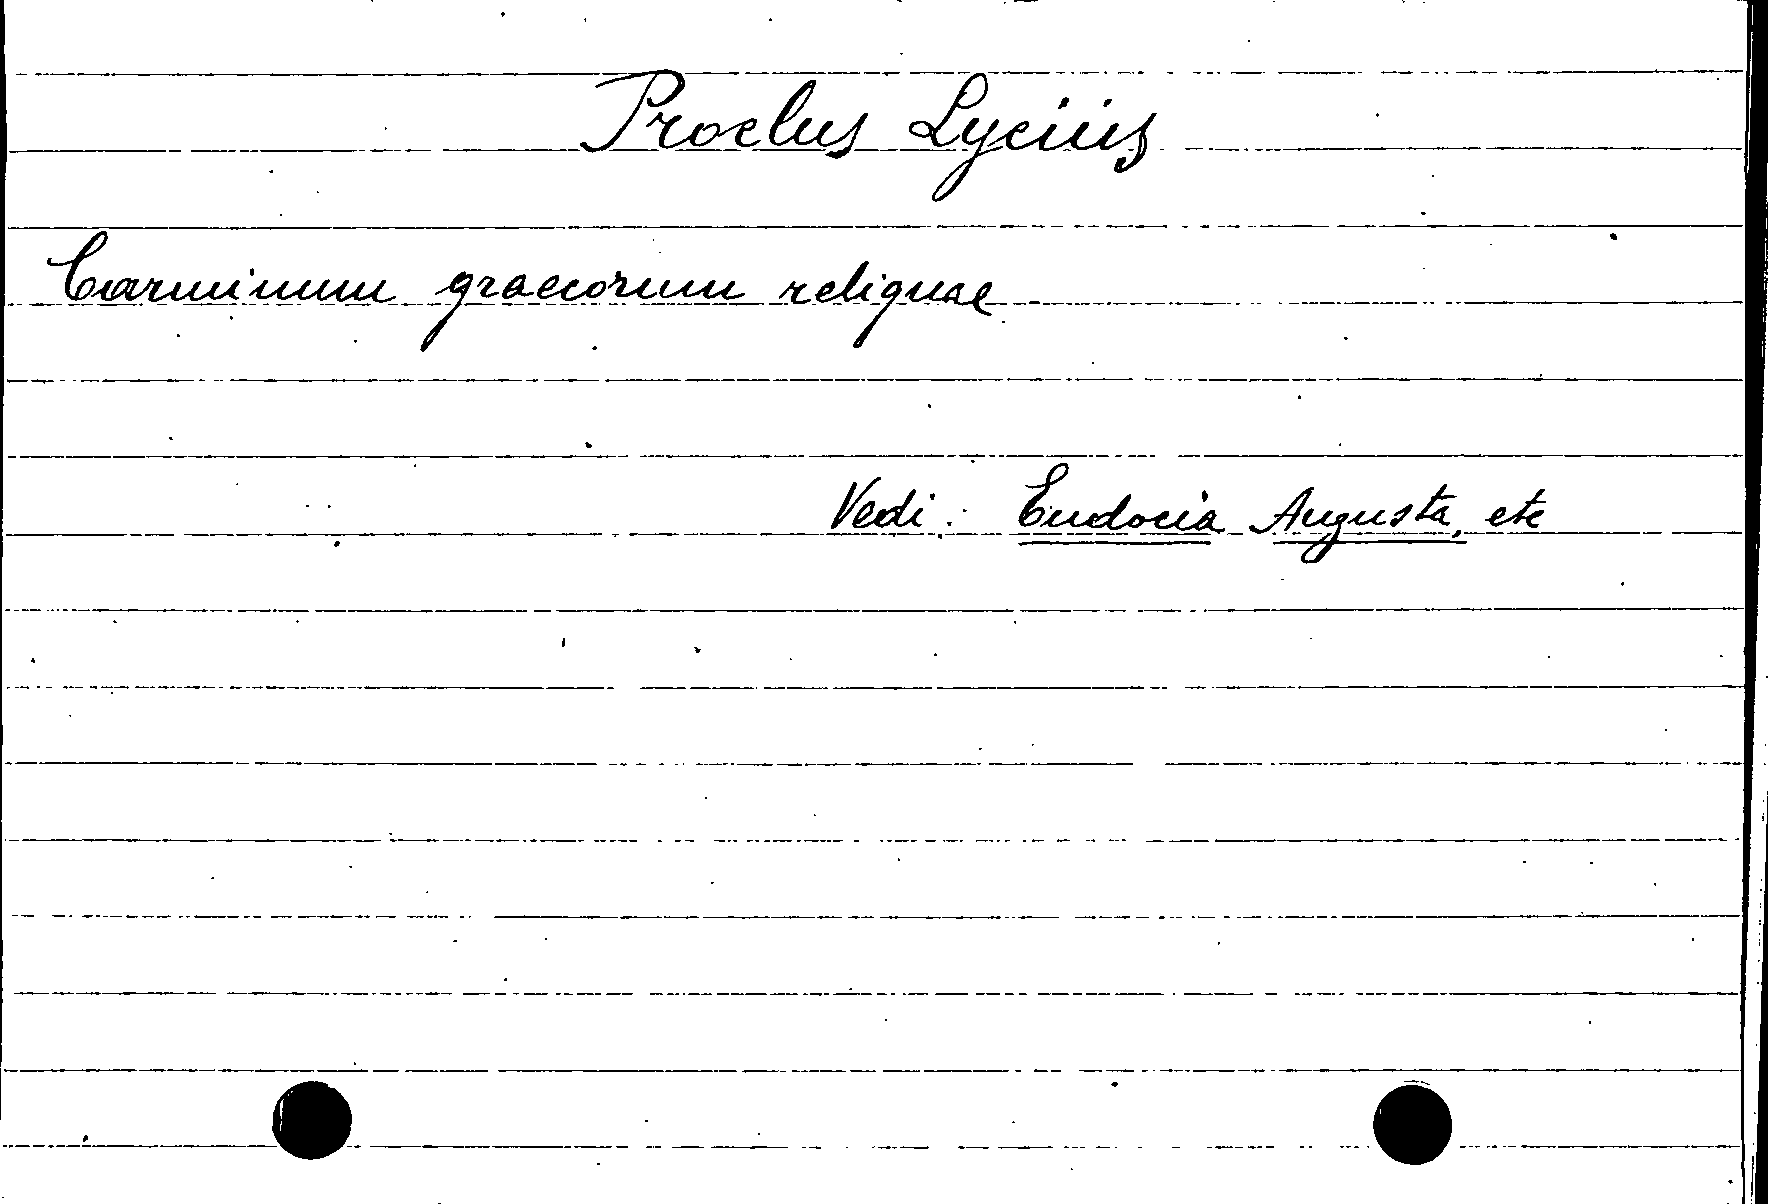 Proclus Lycius
Carminum graecorum reliquae
Vedi: Eudocia Augusta, etc